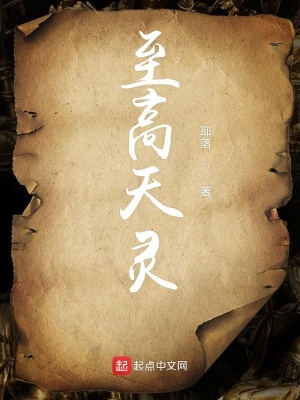 至高天灵
耶落
著
起 起点中文网